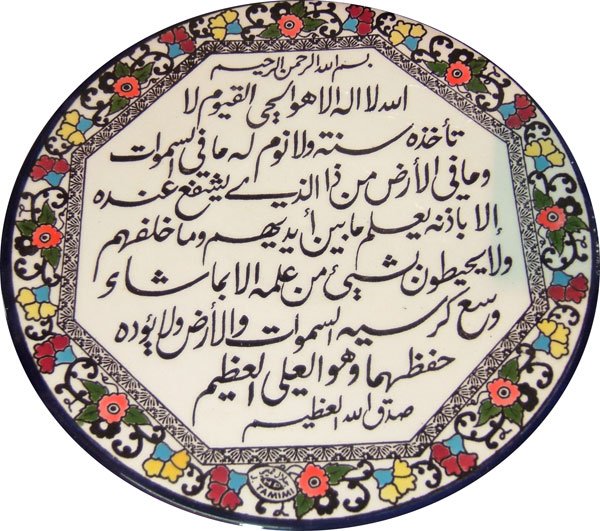 بسم الله الرحمن الرحيم
الله لا اله الا هو الحي القيوم لا
تأخذه سنة ولا نوم له ما في السموات
وما في الأرض من ذا الذي يشفع عنده
الا باذنه يعلم ما بين أيديهم وما خلفهم
ولا يحيطون بشيئ من علمه الا بما شاء
وسع كرسيه السموات والأرض ولا يؤده
حفظهما وهو العلي العظيم
صدق الله العظيم
TAMIMI